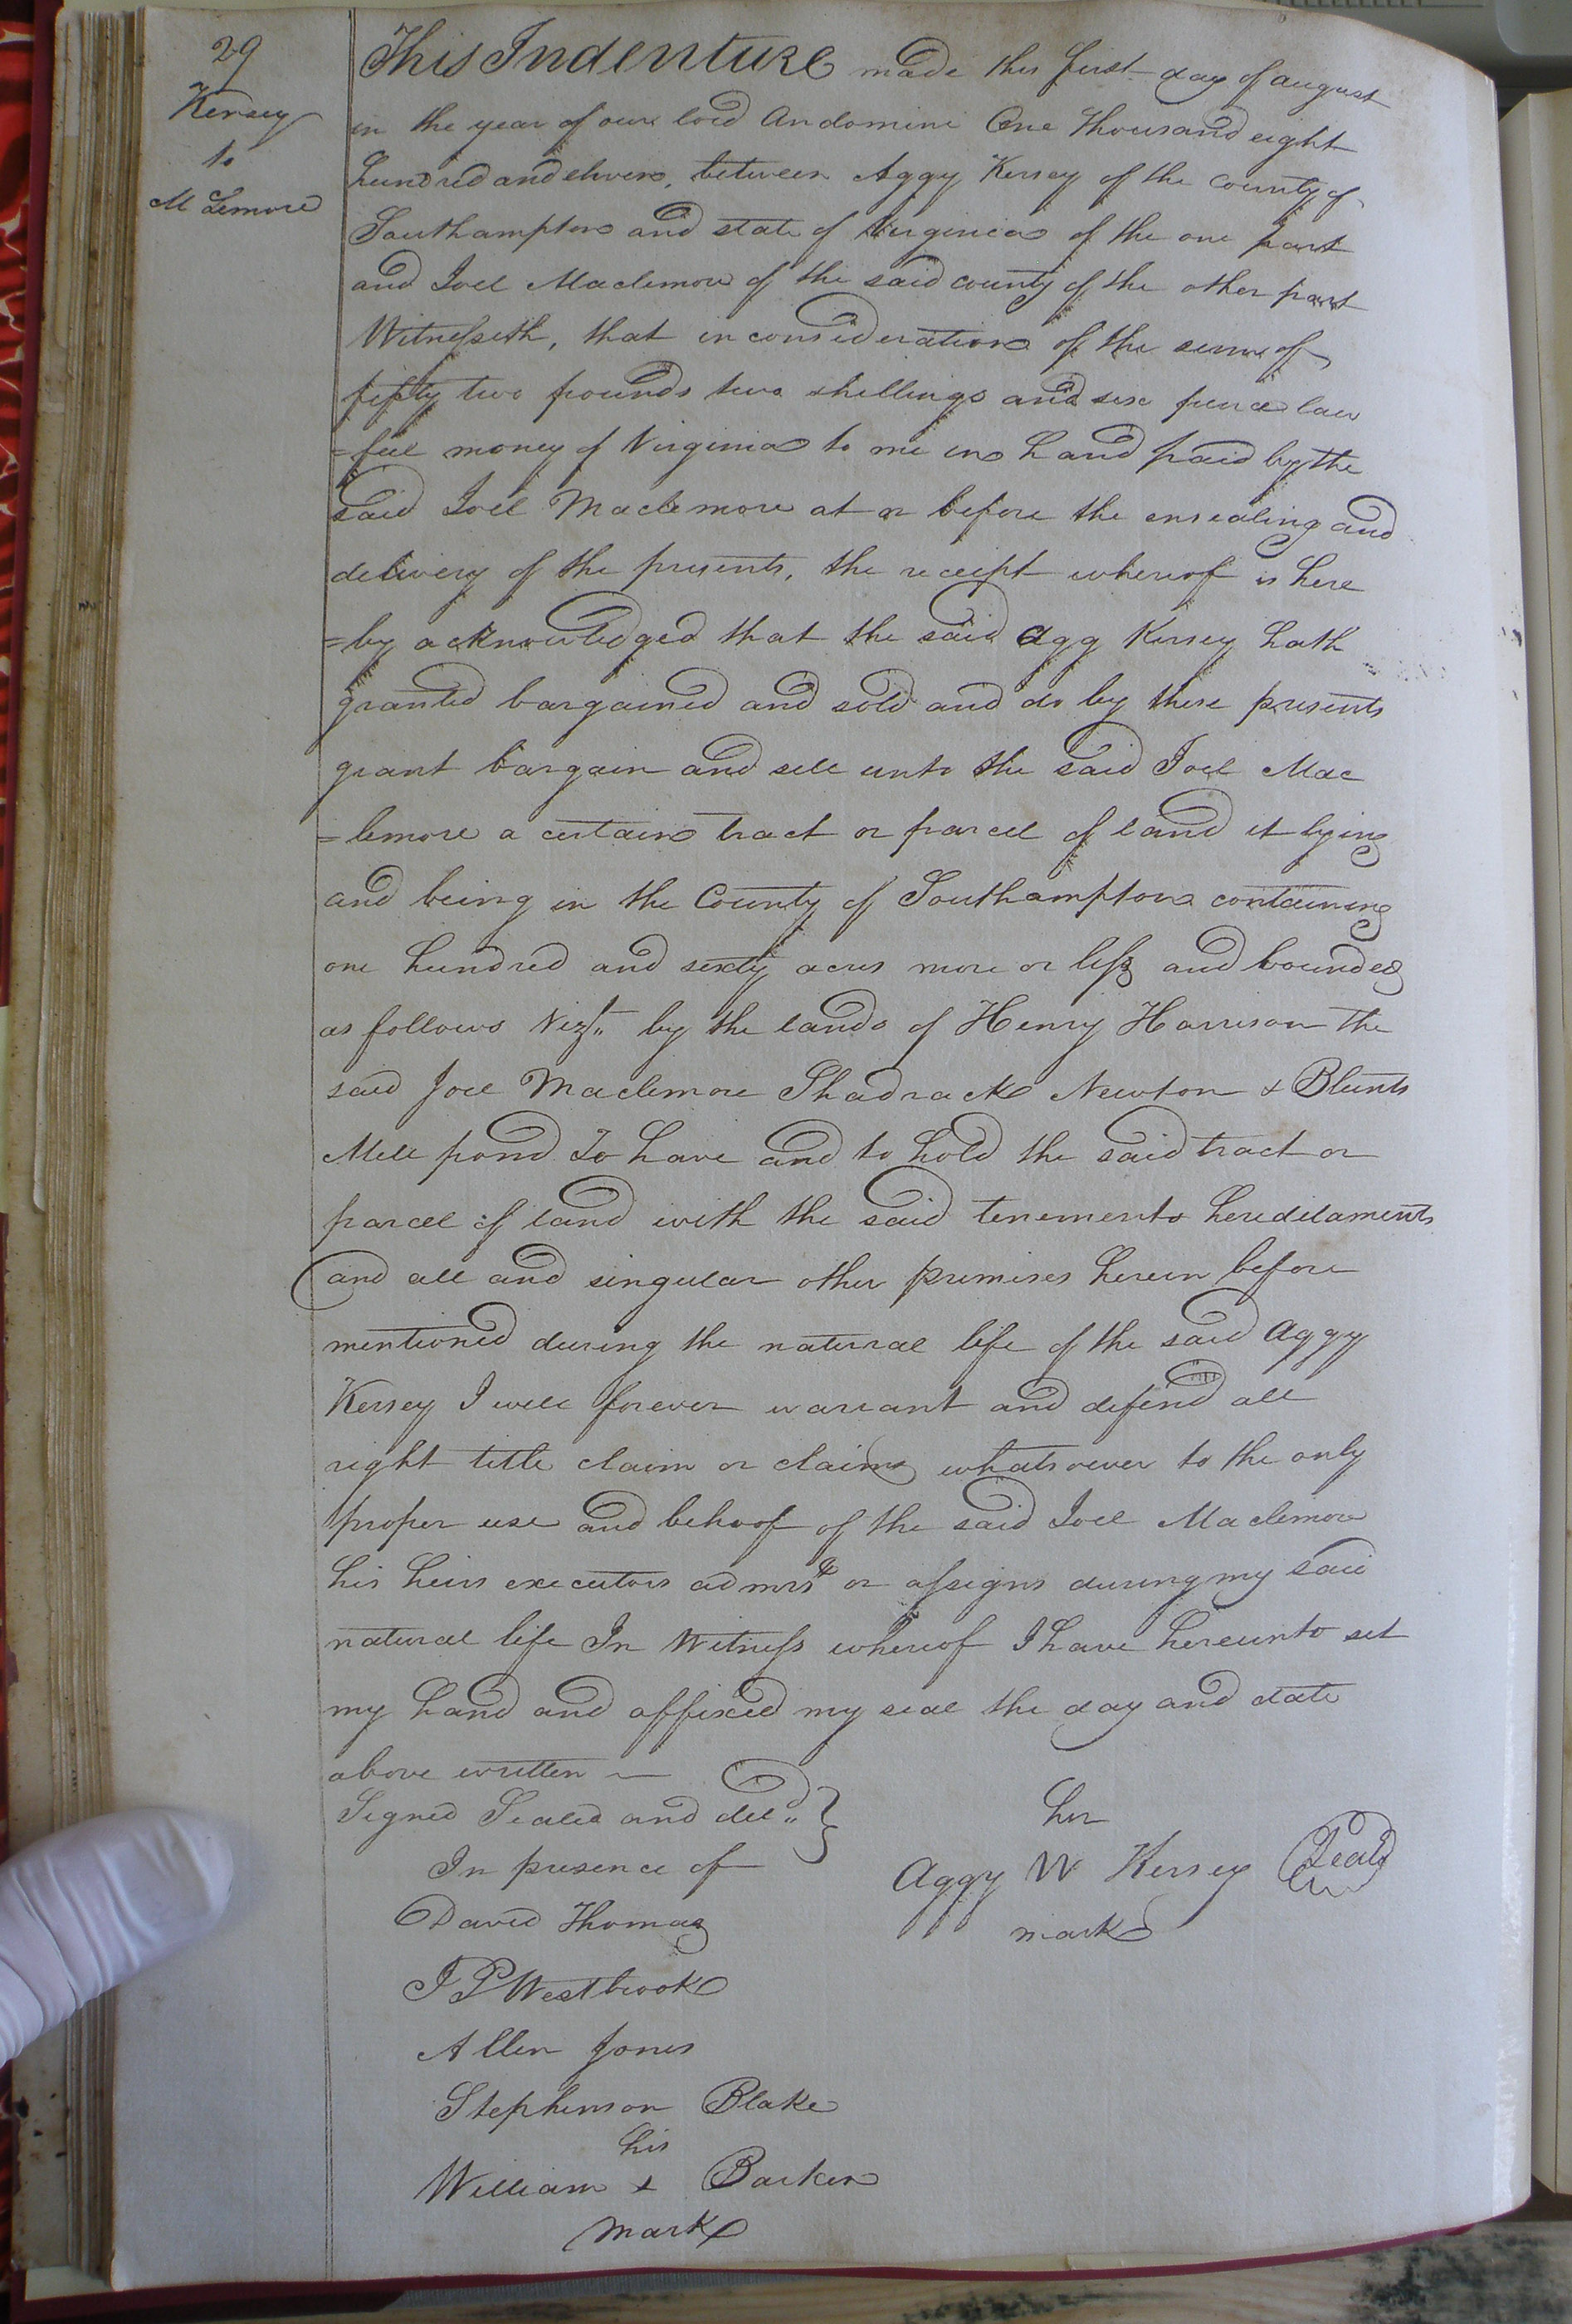 29
Kersey
to
McLemore
This Indenture made this first day of august
in the year of our lord Andomini One thousand eight
hundred and eleven, between Aggy Kersey of the county of
Southampton and state of Virginia of the one part
and Joel Maclemore of the said county of the other part
Witnesseth, that in consideration of the sume of
fifty two pounds two shillings and six pence law
=full money of Virginia to me in hand paid by the
said Joel Maclemore at or before the ensealing and
delivery of the presents, the receipt whereof is here
=by acknowledged that the said Agg Kersey hath
granted bargained and sold and do by these presents
grant bargain and sell unto the said Joel Mac
=lemore a certain tract or parcel of land it lying
and being in the County of Southampton containing
one hundred and sixty acres more or less and bounded
as follows Vizt. by the lands of Henry Harrison The
said Joel Maclemore Shadrack Newton & Blunts
Mill pond To have and to hold the said tract or
parcel of land with the said tenements hereditaments
and all and singular other premises herein before
mentioned during the natural life of the said Aggy
Kersey I will forever warrant and defend all
right title claim or claims whatsoever to the only
proper use and behoof of the said Joel Maclemore
his heirs executors admrs or assigns during my said
natural life In Witness whereof I have hereunto set
my hand and affixed my seal the day and date
above written
Signed Sealed and deld.. }
In presence of
David Thomas
J P Westbrook
Allen Jones
Stephenson Blake
his
William x Barker
mark
her
Aggy W Kersey Seal
mark